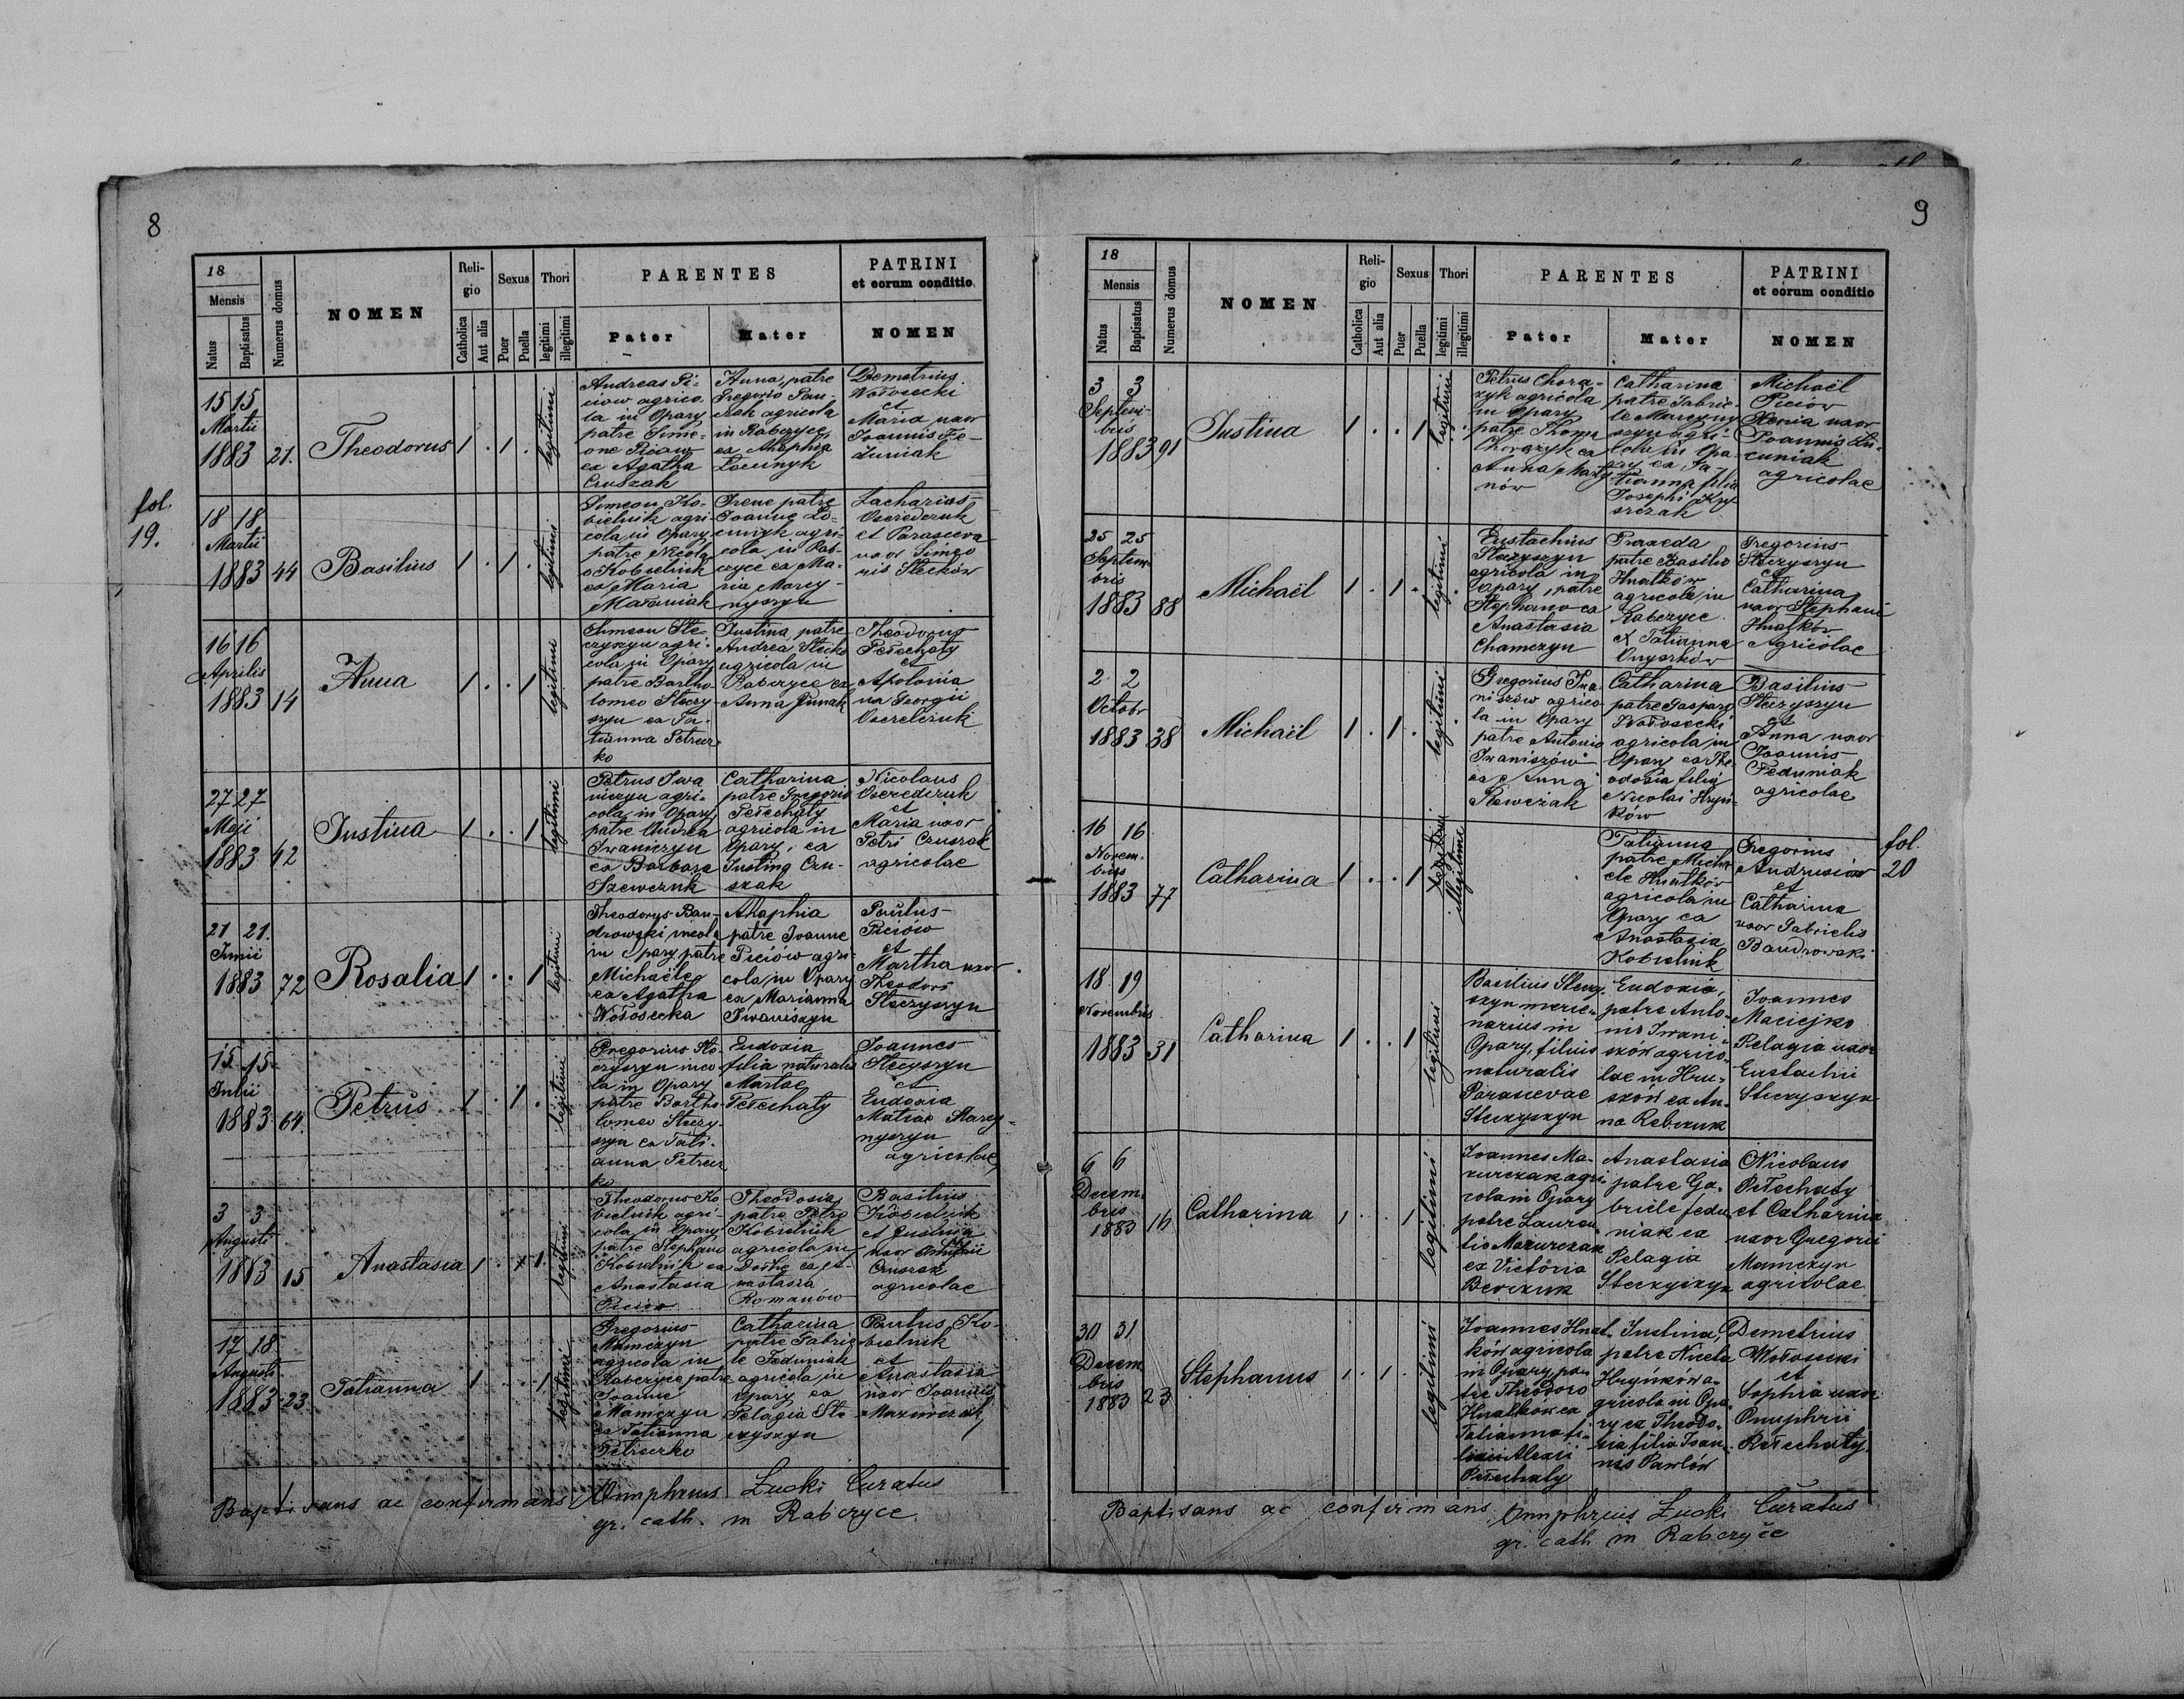 8
fol.
19.
18
Mensis
Natus
Baptisatus
Numerus domus
NOMEN
Reli-
gio
Catholica
Aut alia
Sexus
Puer
Puella
Thori
legitimi
illegitimi
PARENTES
Pater
Mater
PATRINI
et eorum conditio
NOMEN
15 15
Martii
1883 21.
Theodorus
1 . 1 .
legitimi
Andreas Pi-
ciow agrico-
la in Opary
patre Sime-
one Piciow
ex Agatha
Cruszak
Anna, patre
Gregorio Pau-
czak agricola
in Rabczyce,
ex Ahaphia
Łocunyk
Demetrius
Wołosecki
et
Maria uxor
Joannis Fe-
duniak
18 18
Martii
1883 44
Basilius
1 . 1 .
legitimi
Simeon Ko-
bielnik agri-
cola in Opary
patre Nicola
o Kobielnik
ex Maria
Małaniak
Irene patre
Joanne Ło-
cunyk agri-
cola in Rab-
czyce ex Ma-
ria Marcy-
nyszyn
Zacharias
Oseredczuk
et Parasceva
uxor Simeo
nis Stecków
16 16
Aprilis
1883 14
Anna
1 . . 1
legitimi
Simeon Ste-
czyszyn agri-
cola in Opary
patre Bartho
lomeo Steczy-
szyn ex Ta-
tianna Petrecz-
ko
Justina, patre
Andrea Stecko
agricola in
Rabczyce ex
Anna Junak
Theodorus
Pełechaty
et
Apolonia
ux Georgii
Oseredczuk
27 27
Maji
1883 42
Justina
1 . . 1
legitimi
Petrus Iwa
niczyn agri-
cola in Opary,
patre Andrea
Iwaniczyn
ex Barbara
Szewczuk
Catharina
patre Gregorio
Pełechaty
agricola in
Opary, ex
Justina Cru-
szak
Nicolaus
Oseredczuk
et
Maria uxor
Petri Cruszak
agricolae
21 21.
Junii
1883 72
Rosalia
1 . . 1
legitimi
Theodorus Ban-
drowski incola
in Opary patre
Michaële
ex Agatha
Wołosecka
Ahaphia
patre Joanne
Piciów agri-
cola in Opary
ex Marianna
Iwaniszyn
Paulus
Piciów
et
Martha uxor
Theodori
Steczyszyn
15 15
Julii
1883 64.
Petrus
1 . 1 .
legitimi
Gregorius Ste-
czyszyn inco
la in Opary
patre Bartho
lomeo Steczy-
szyn ex Tati-
anna Petrecz
ko
Eudoxia
filia naturalis
Martae
Pełechaty
Joannes
Stecyszyn
et
Eudoxia
Matiae Marcy-
nyszyn
agricolae
3 3
Augusti
1883 15
Anastasia
1 . 1.
legitimi
Theodorus Ko
bielnik agri-
cola in Opary
patre Stephano
Kobielnik ex
Anastasia
Piciow
Theodosia,
patre Petro
Kobielnik
agricola in
Dołhe ex A-
nastasia
Romanów
Basilius
Kobielnik
et Justina
uxor Onuphrii
Cruszak
agricolae
17 18
Augusti
1883 23
Tatianna
1 . . 1
legitimi
Gregorius
Mamczyn
agricola in
Rabczyce patre
Joanne
Mamczyn
ex Tatianna
Petreczko
Catharina
patre Gabrie
le Feduniak
agricola in
Opary, ex
Pelagia Ste
czyszyn
Paulus Ko-
bielnik
et
Anastasia
uxor Joannis
Mazurczak
Baptisans ac confirmans Onuphrius Łucki Curatus
gr. cath. in Rabczyce
9
18
Mensis
Natus
Baptisatus
Numerus domus
NOMEN
Reli-
gio
Catholica
Aut alia
Sexus
Puer
Puella
Thori
legitimi
illegitimi
PARENTES
Pater
Mater
PATRINI
et eorum conditio
NOMEN
3 3
Septem-
bris
1883 91
Justina
1 . . 1
legitimi
Petrus Chora-
zyk agricola
in Opary
patre Thoma
Chorazyk ex
Anna
nów
Catharina
patre Gabrie-
le Marcyny
szyn agri-
cola in Opa-
ry ex Ta-
tianna filia
Josephi Kry
szczak
Michaël
Piciów
Xenia uxor
Joannis
cuniak
agricolae
25 25
Septem-
bris
1883 88
Michaël
1 . 1 .
legitimi
Eustachius
Steczyszyn
agricola in
Opary, patre
Stephano ex
Anastasia
Chamczyn
Praxeda
patre Basilio
Hnatków
agricola in
Rabczyce
ex Tatianna
Onyszków
Gregorius
Steczyszyn
et
Catharina
uxor Stephani
Hnatków
Agricolae
2 2
Octobr
1883 38
Michaël
1 . 1 .
legitimi
Gregorius Iwa-
niszów agrico
la in Opary
patre Antonio
Iwaniszów
ex Anna
Szewczak
Catharina
patre Gasparo
Wołosecki
agricola in
Opary ex The
odosia filia
Nicolai Hryń-
ków
Basilius
Steczyszyn
et
Anna uxor
Joannis
Feduniak
agricolae
16 16
Novem-
bris
1883 77
Catharina
1 . . 1
illegitime
Tatianna
patre Micha
ele Hnatków
agricola in
Opary ex
Anastasia
Kobielnik
Gregorius
Andrusiów
et
Catharina
uxor Gabrielis
Bandrowski
fol.
20
18 19
Novembris
1883 31
Catharina
1 . . 1
legitimi
Basilius Steczy-
szyn merce-
narius in
Opary, filius
naturalis
Parascevae
Steczyszyn
Eudoxia,
patre Anto-
nio Iwani-
szów agrico-
lae in Hru-
szów ex An-
na Rebczuk
Joannes
Maciejko
Pelagia uxor
Eustachii
Steczyszyn
6 6
Decem-
bris
1883 16
Catharina
1 . . 1
legitimi
Joannes Ma-
zurczak agri-
cola in Opary
patre Lauren-
tio Mazurczak
ex Victoria
Berezuk
Anastasia
patre Ga-
briele fedu-
niak ex
Pelagia
Steczyszyn
Nicolaus
Pełechaty
et Catharina
uxor Gregorii
Mamczyn
agricolae
30 31
Decem
bris
1883 23
Stephanus
1 . 1 .
legitimi
Joannes Hnat-
ków agricola
in Opary, pa-
tre Theodoro
Hnatków ex
Tatianna fi-
lia Alexii
Pełechaty
Justina,
patre Niceta
Hryńków a-
gricola in Opa-
ry ex Theodo-
sia filia Joan-
nis Pawlów
Demetrius
Wołosecki
et
Sophia uxor
Onuphrii
Pełechaty.
Baptisans ac confirmans Onuphrius Łucki Curatus
gr. cath in Rabczyce